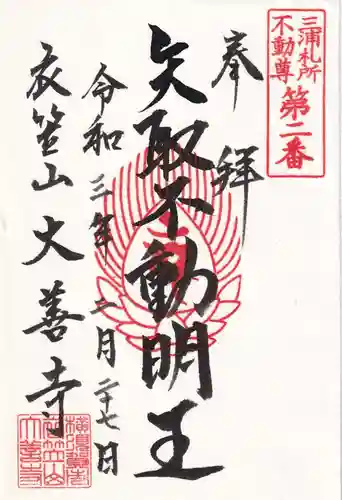 三浦札所
不動尊
第二番
奉拝
矢取不動明王
令和三年二月二十七日
衣笠山大善寺
横須賀市
衣笠山
大善寺